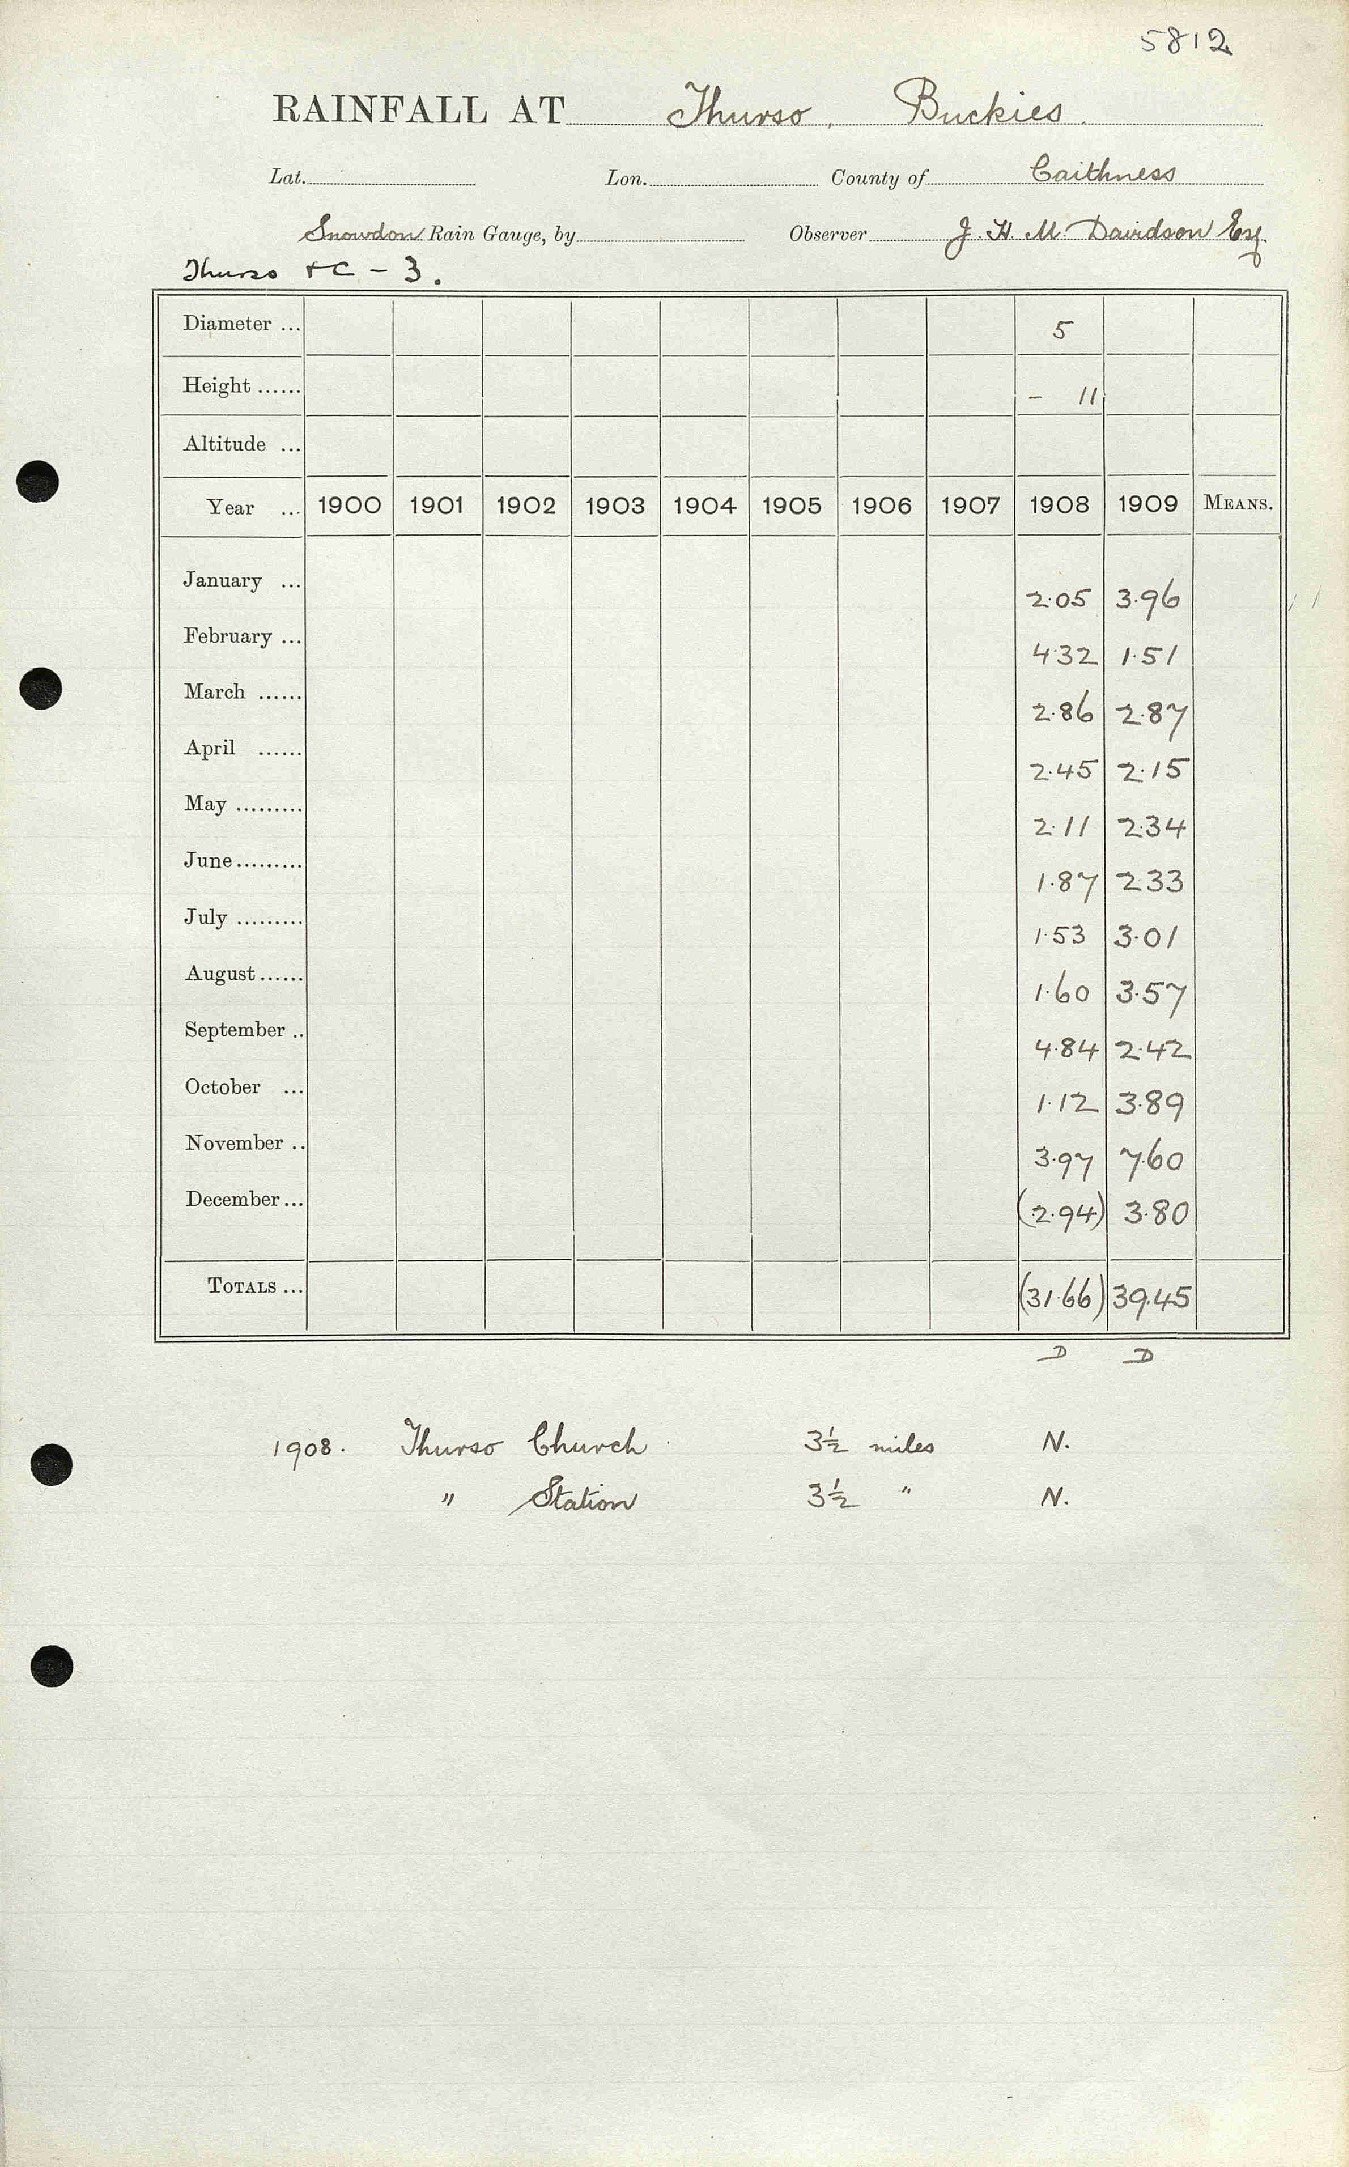 5812
RAINFALL AT Thurso, Buckies.
Lat. Lon. County of Caithness
Snowdon Rain Gauge, by Observer J. H. M. Davidson Esq.
Thurso + C - 3.
Diameter ... 5
Height ...... - 11
Altitude ...
Year ... 1900 1901 1902 1903 1904 1905 1906 1907 1908 1909 MEANS.
January ... 2.05 3.96
February ... 4.32 1.51
March ...... 2.86 2.87
April ...... 2.45 2.15
May ......... 2.11 2.34
June......... 1.87 2.33
July ......... 1.53 3.01
August ...... 1.60 3.57
September .. 4.84 2.42
October ... 1.12 3.89
November .. 3.97 7.60
December ... (2.94) 3.80
TOTALS ... (31.66) 39.45
D D
1908. Thurso Church 3½ miles N.
" Station 3½ " N.